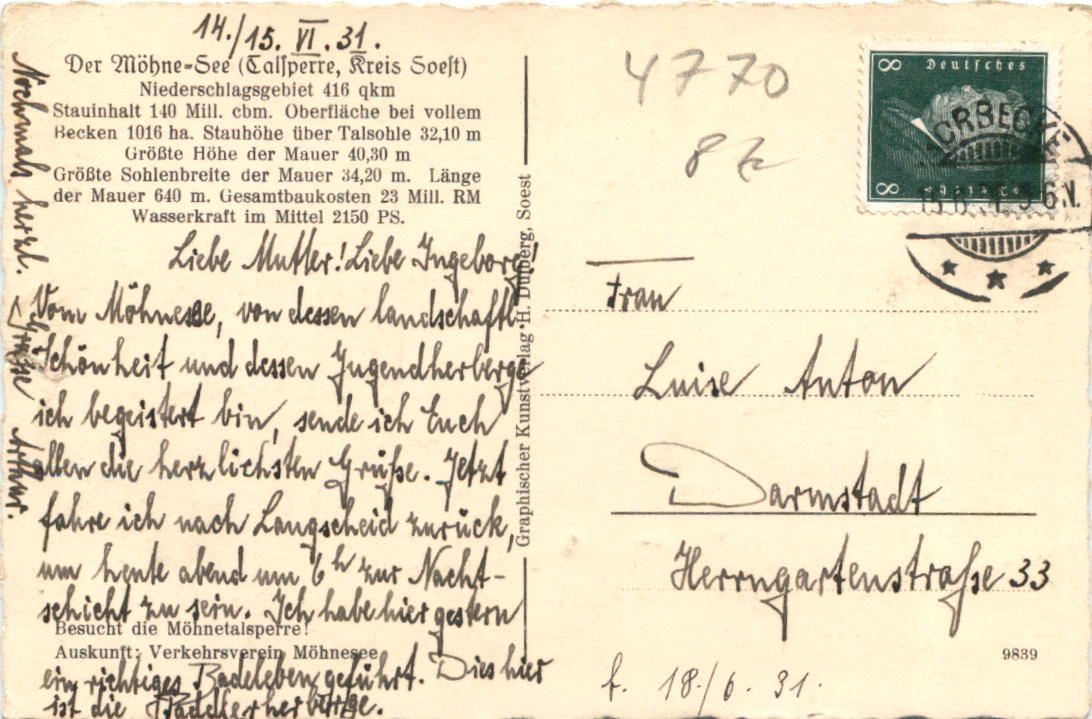 14./15. VI. 31.
Der Möhne-See (Talsperre, Kreis Soest)
Niederschlagsgebiet 416 qkm
Stauinhalt 140 Mill. cbm. Oberfläche bei vollem
Becken 1016 ha. Stauhöhe über Talsohle 32,10 m
Größte Höhe der Mauer 40,30 m
Größte Sohlenbreite der Mauer 34,20 m. Länge
der Mauer 640 m. Gesamtbaukosten 23 Mill. RM
Wasserkraft im Mittel 2150 PS.
Liebe Mutter! Liebe Ingeborg!
Vom Möhnesee, von dessen landschaftl.
Schönheit und dessen Jugendherberge
ich begeistert bin, sende ich Euch
allen die herzlichsten Grüße. Jetzt
fahre ich nach Langscheid zurück,
um heute abend um 6h zur Nacht-
schicht zu sein. Ich habe hier gestern
Besucht die Möhnetalsperre!
Auskunft: Verkehrsverein Möhnesee
ein richtiges Badeleben geführt. Dies hier
ist die Paddlerherberge.
Nochmals herzl. Grüsse Arthur.
Graphischer Kunstverlag H. Dülberg, Soest
4770
8
Deutsches
Reich
8
8
Frau
Luise Anton
Darmstadt
Herrngartenstraße 33
9839
b. 18./6. 31.